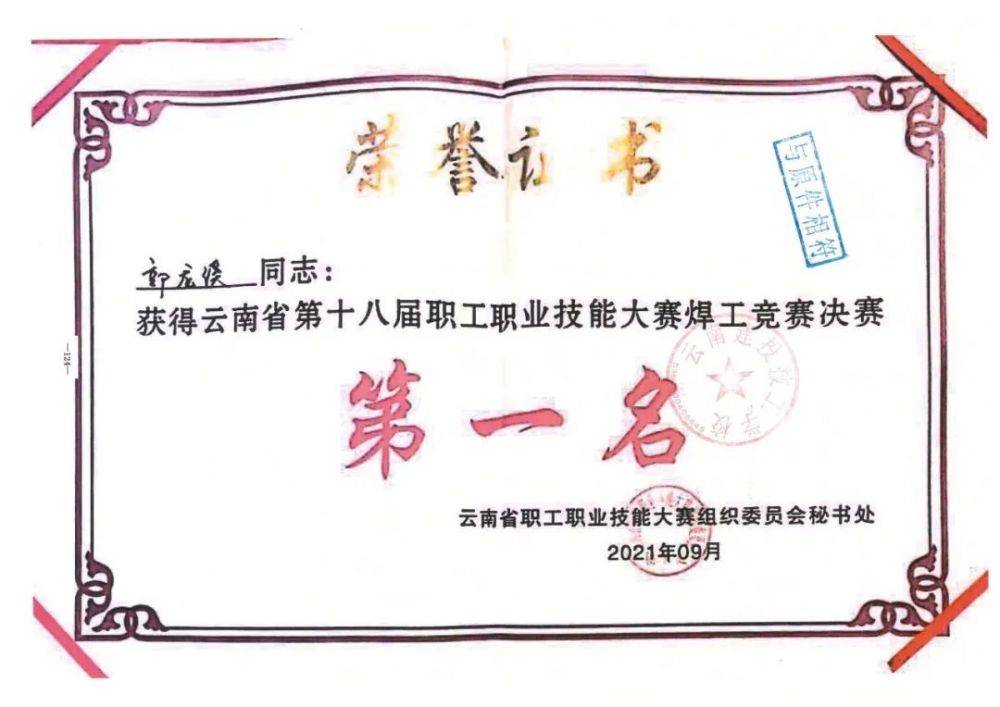 荣誉证书
与原件相符
同志：
获得云南省第十八届职工职业技能大赛焊工竞赛决赛
云南建投技工学校
第一名
云南省职工职业技能大赛组织委员会秘书处
2021年09月
—124—